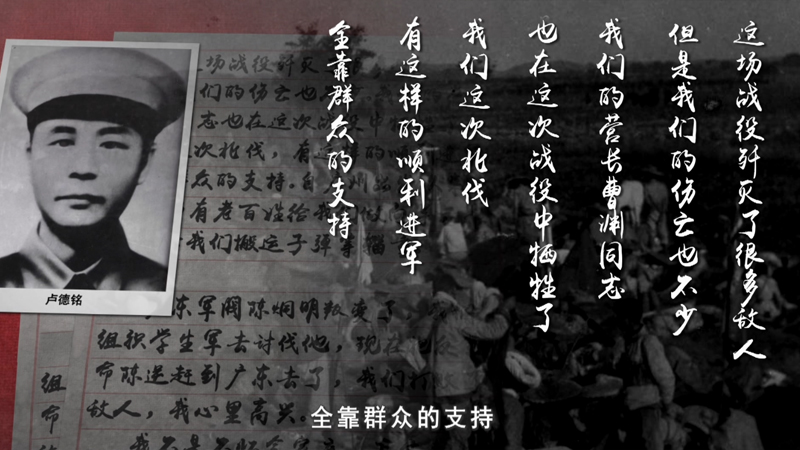 这场战役歼灭了很多敌人
但是我们的伤亡也不少
我们的营长曹渊同志
也在这次战役中牺牲了
我们这次北伐
有这样的顺利进军
全靠群众的支持
卢德铭
场战役歼灭
们的伤亡也
志也在这次战役中
次北伐，有这
众的支持。自
有老百姓给我
我们搬运子弹
东军阀陈炯明叛变了，
组织学生军去讨伐他，现在
命陈逆赶到广东去了，我们打
敌人，我心里高兴。
组
命
全靠群众的支持